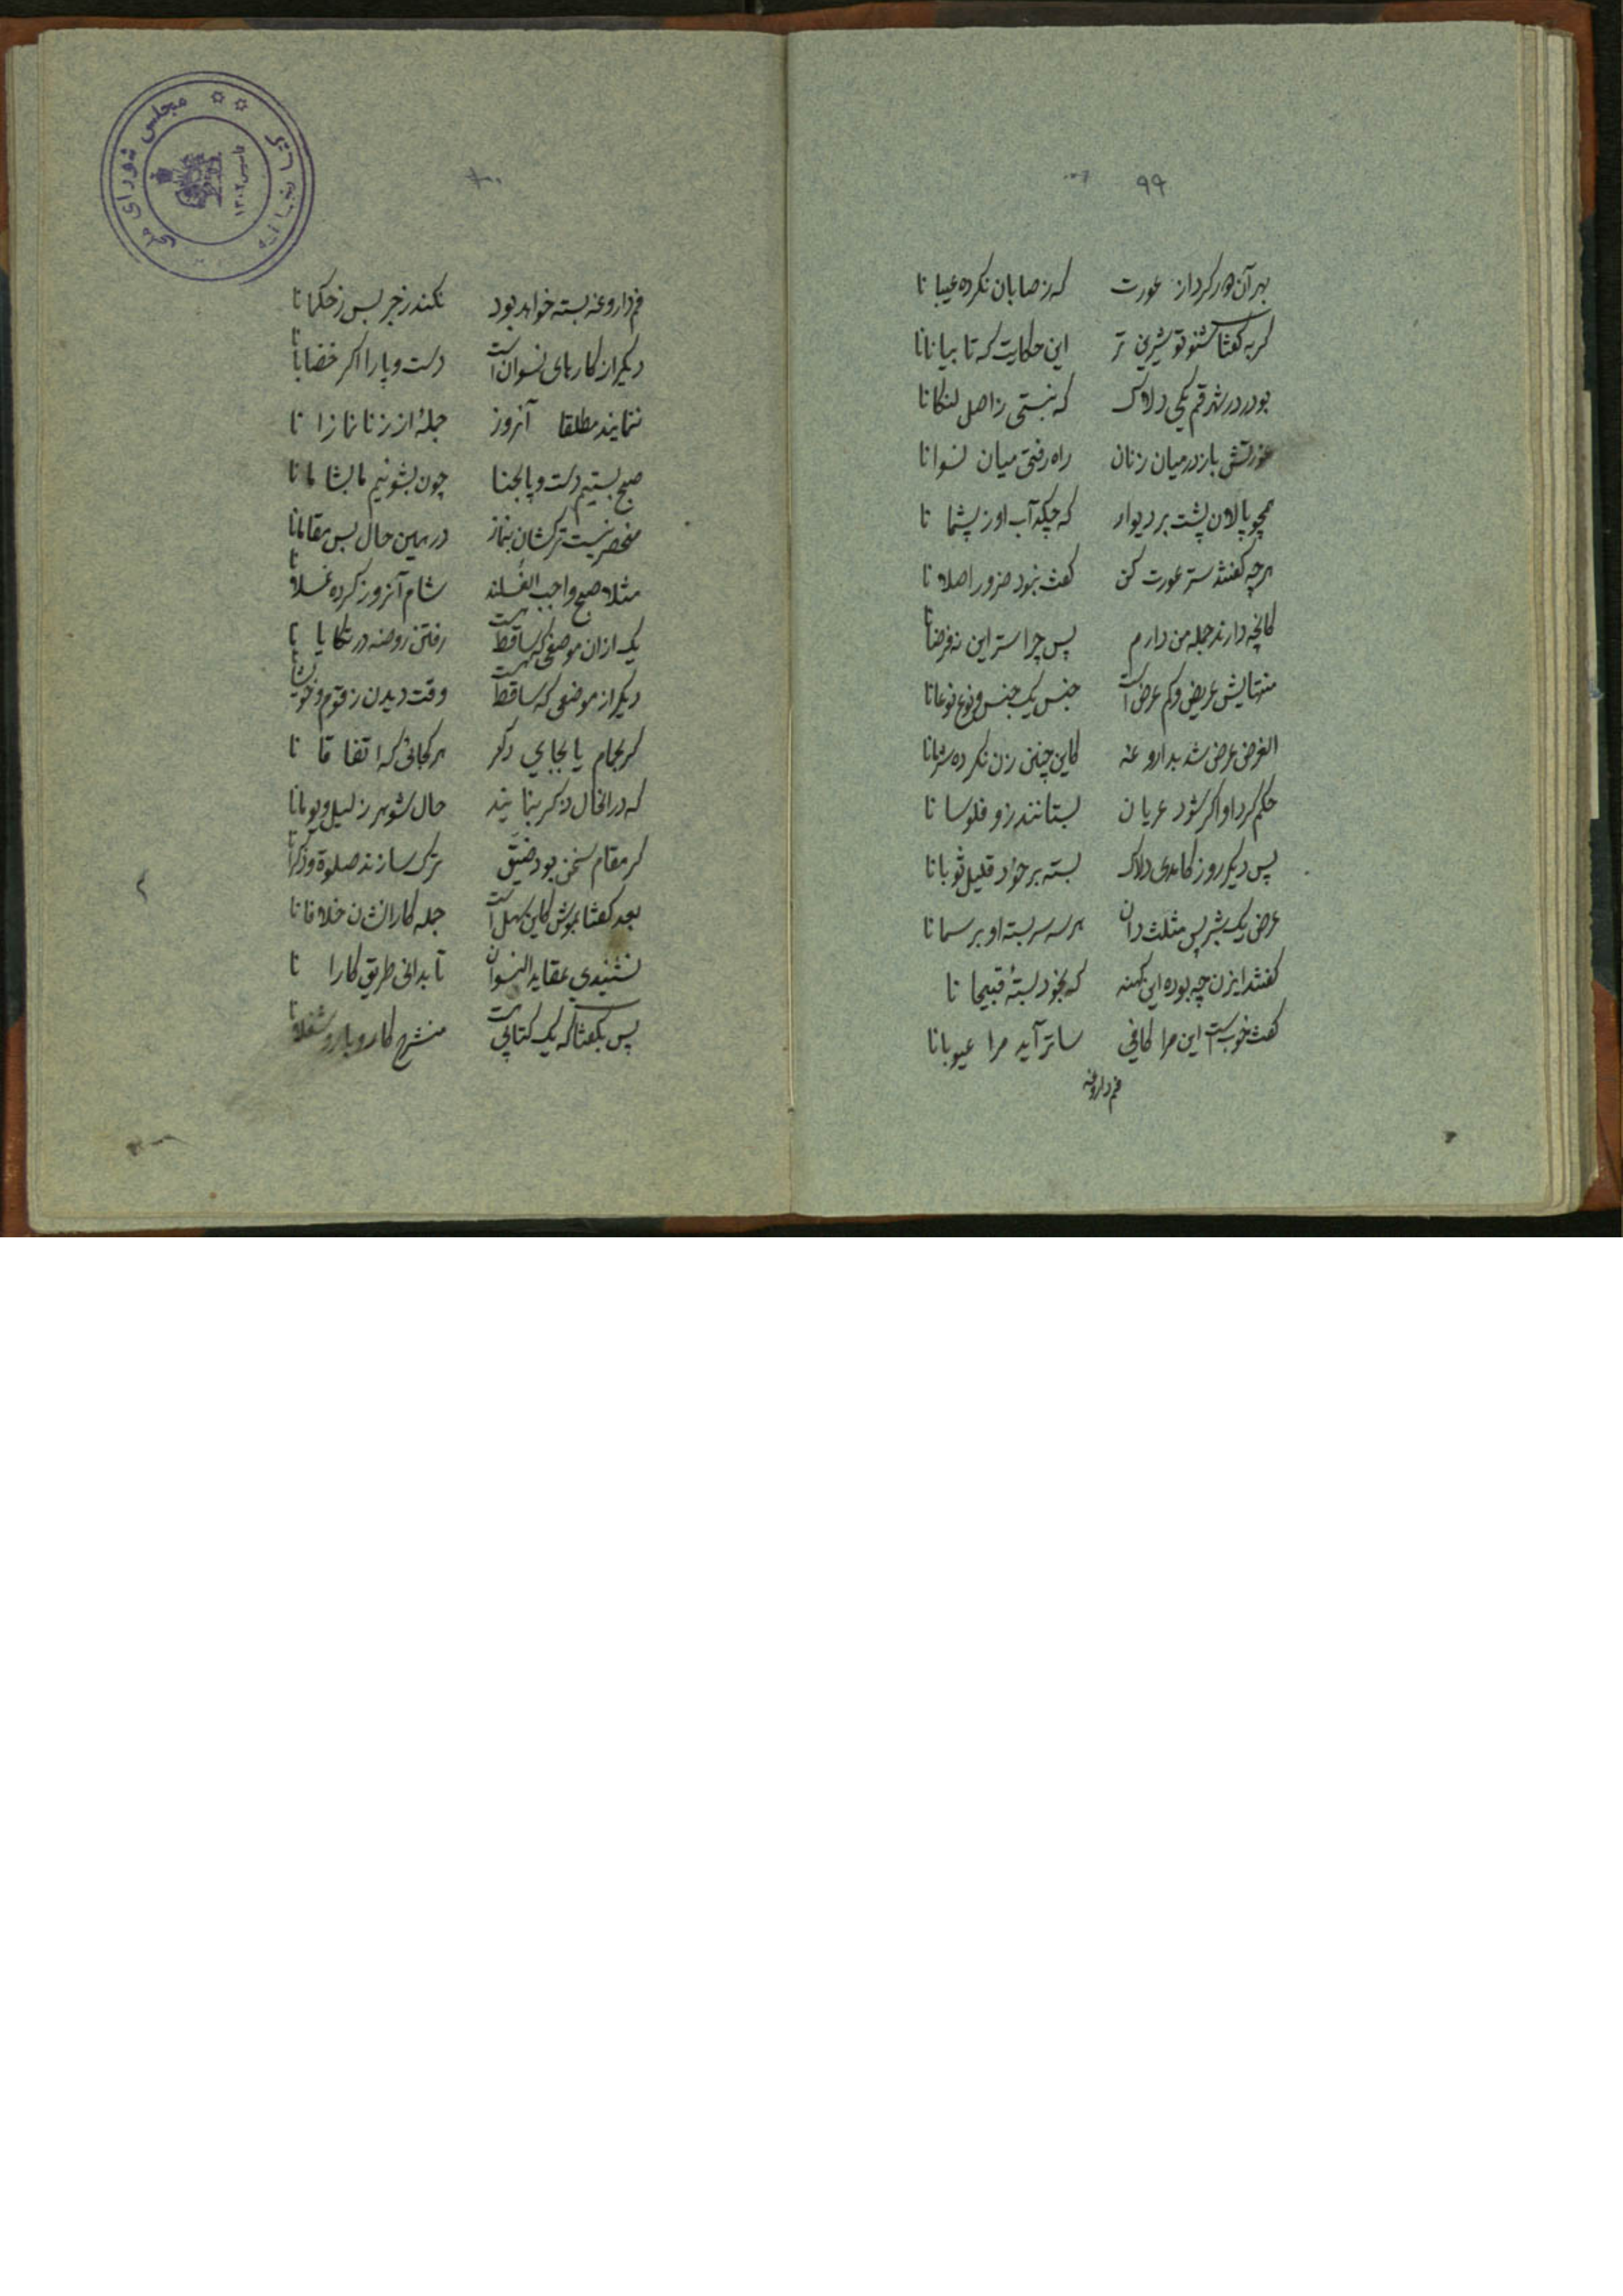 ۹۹
بهر آن هر کرد از عورت که رضا بان نکرده عیبا نا
گربه گفتا شنو تو شیرین تر این حکایت که تا بیانانا
بود در شهر قم یکی دلاک که نبستی ز اصل لنگانا
عورتش باز در میان زنان راه رفتی میان نسوانا
همچو پالان پشت بر دیوار که چکد آب او ز پشما نا
هرچه گفتند ستر عورت کن گفت نبود ضرور اصلا نا
کانچه دارند جمله من دارم پس چرا ستر این نه فرضا نا
منتهایش عریض و کم عرض است جنس یک جنس و نوع نوعانا
الغرض عرض شد بداروغه کاین چنین زن نکرده سترانا
حکم کرد او اگر شود عریان بستانند زو فلوسا نا
پس دیگر روز کامدی دلاک بسته بر خود قلیل ثوبانا
عرض یک شبر پس مثلث دان هر سه سر بسته او برسمانا
گفتند ایزن چه بوده این کهنه که بخود بستهٔ قبیحا نا
گفت خوبست این مرا کافی ساتر آید مرا عیوبانا
فم داروغه
۱۰۰
فم داروغه بسته خواهد بود نکند زجر بس ز حکمانا
دیگر از کارهای نسوان است دست و پا را اگر خضابا نا
ننمایند مطلقا آنروز جملهٔ از زنا نمازا نا
صبح بستیم دست و پا بحنا چون بشوئیم ما بشامانا
منحصر نیست ترکشان بنماز در همین حال بس مقامانا
مثلا صبح واجب الغسلند شام آنروز کرده غسلا نا
یک از ان موضعی که ساقط هست رفتن روضه در تکایا نا
دیگر از موضعی که ساقط هست وقت دیدن ز قوم و خویشانا
گر بحمام یا بجای دگر هر کجائی که اتفاقا نا
که در انحال ذکر بنمایند حال شوهر ز لیل و یومانا
گر مقام سخن بود ضیق ترک سازند صلوة و ذکرانا
بعد گفتا بموش کاین سهل است جمله کارانشان خلافانا
نشنیدی عقاید النسوان تا بدانی طریق کارا نا
پس بگفتا که یک کتابی هست منشرح کار و بار و شغلانا
مجلس شورای ملی
تأسیس ۱۳۰۲